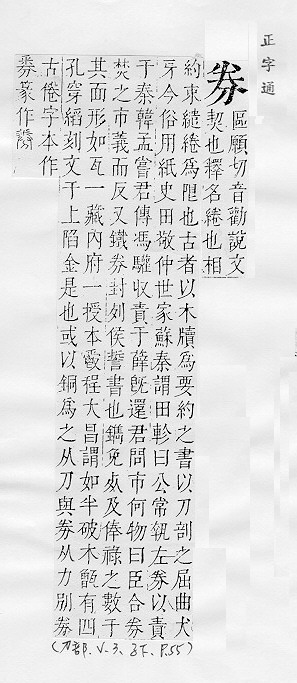 正字通
券
區願切音勸說文
契也釋名綣也相
約束繾綣為限也古者以木牘為要約之書以刀剖之屈曲犬
牙今俗用紙史田敬仲世家蘇秦謂田軫曰公常執左券以責
于秦韓孟嘗君傳馮驩収責于薛旣還君問市何物曰臣合券
焚之市義而反又鐵券封列侯誓書也鐫免𣦸及俸祿之數于
其面形如瓦一藏內府一授本爵程大昌謂如半破木甑有四
孔穿縚刻文于上陷金是也或以銅為之从刀與劵从力別劵
古倦字本作
𠔉篆作
(刀部, V.3, 8下, P.55)